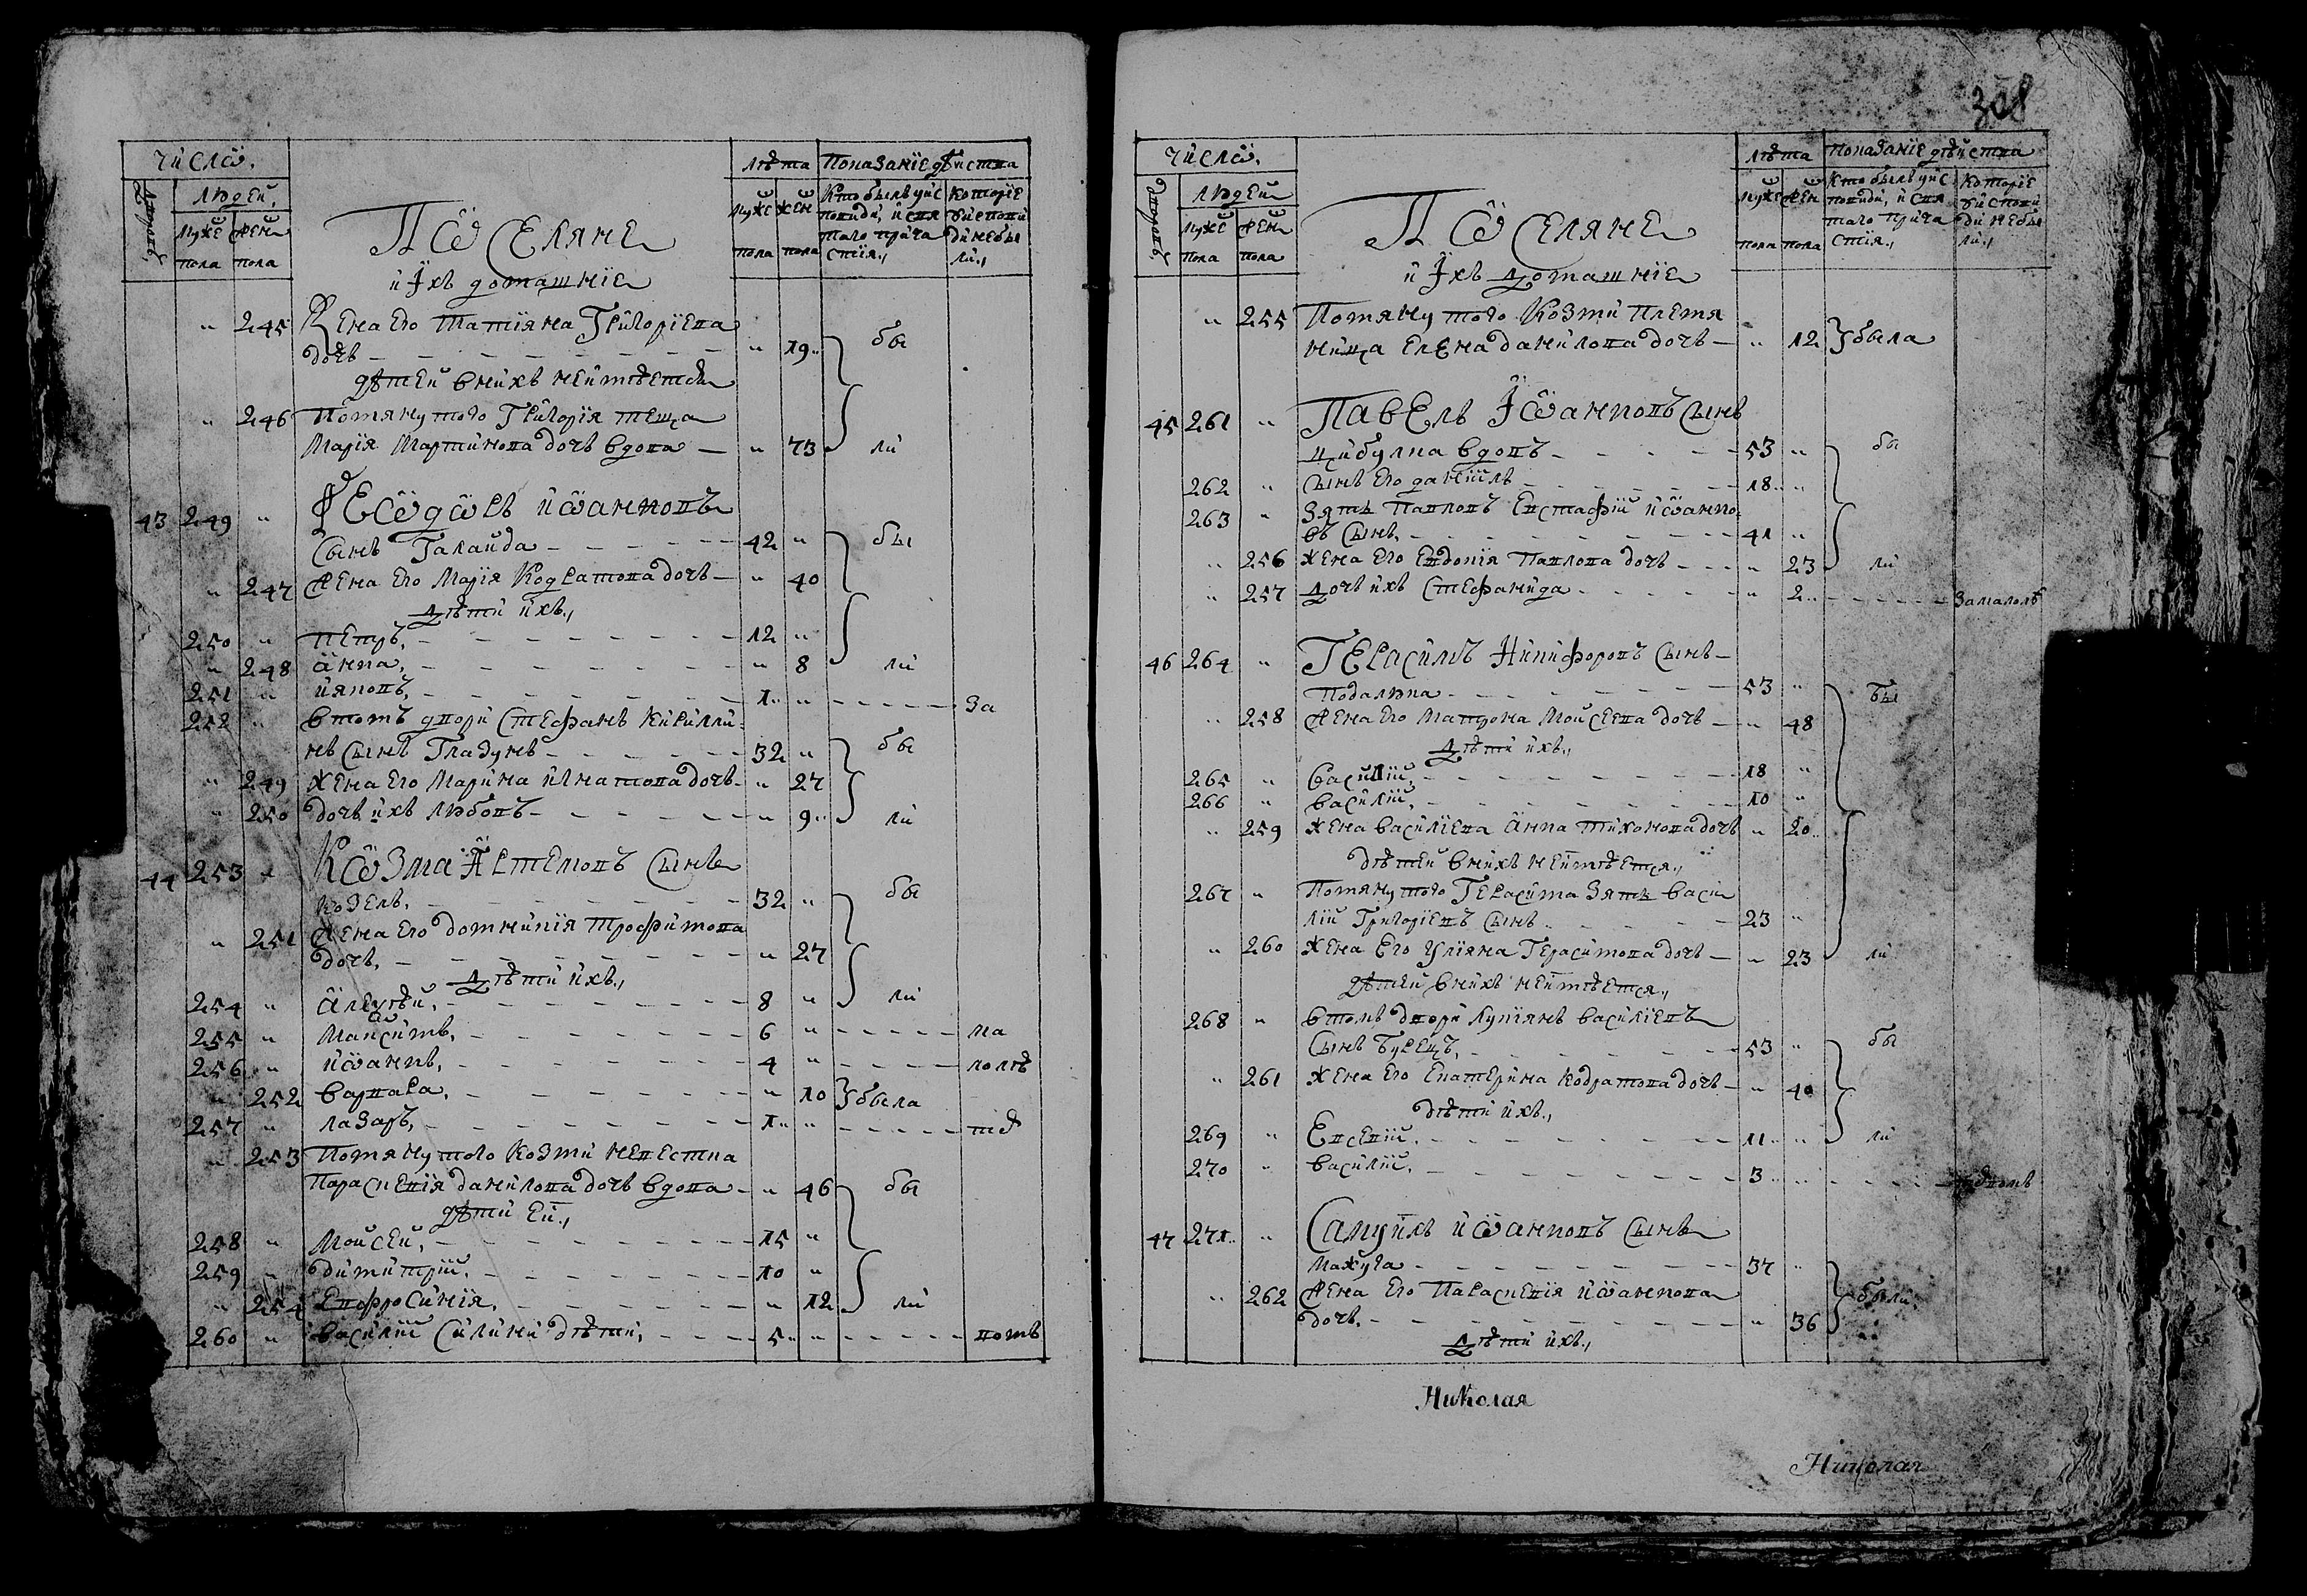 числō.
Дворовъ.
Людей.
мужĕ пола
женĕ пола
Пōселяне
и Їхъ домашнїе
лѣта
мужĕ пола
женĕ пола
Показанїе дѣйства
Кто былъ у ис повиди, и свя таго прича стїя.,
которїе У исповѣ ди небы ли.,
„ 245 Жена его Татїяна Григорїева
дочь „ 19 бы
дѣтей в нихъ неимѣется
„ 246 Помянутого Григорїя теща
Марїя Мартинова дочь вдова „ 73 ли
43 249 „ Феōдōръ иōанновъ
сынъ Галайда 42 „ бы
„ 247 Жена его Марїя Кодратова дочь „ 40
Дѣти ихъ.,
250 „ петръ, 12 „
„ 248 анна, „ 8 ли
251 „ияковъ, 1 „ за
252 „ в томъ двори Стефанъ Кирилли
нъ сынъ Гладунъ 32 „ бы
„ 249 Жена его Марина игнатова дочь „ 27
„ 250 дочь ихъ любовъ „ 9 ли
44 253 „ Кōзма Артемовъ сынъ
козелъ, 32 „ бы
„ 251 Жена его домникїя трофимова
дочь, „ 27
Дѣти ихъ.,
254 „ алеѯѣй, 8 „ ли
255 „ Маѯимъ, 6 „ ма
256 „ иōаннъ, 4 „ лолѣ
„ 252 варвара, „ 10 была
257 „ лазаръ, 1 „ тѣ
„ 253 Помянутого козми невестка
Параскевїя данилова дочь вдова „ 46 бы
дѣти ей.,
258 „ Мойсей, 15 „
259 „ димитрїй, 10 „
„ 254 Евфросинїя, „ 12 ли
260 „ василїй Силини дѣти, 5 „ вомъ
308
числō.
Дворовъ.
Людей
мужĕ пола
женĕ пола
Пōселяне
и Їхъ Домашнїе
лѣта
мужĕ пола
женĕ пола
Показанїе дѣйства
Кто былъ у ис повиди, и свя таго прича стїя.,
Которїе У испови ди небы ли.,
„ 255 Помянутого Козми племя
ница елена данилова дочь „ 12 была
45 261 „ Павелъ Їōанновъ сынъ
цибулка вдовъ 53 „ бы
262 „ сынъ его данїилъ 18 „
263 „ Зять Павловъ Евстафїй иōанно
въ сынъ, 41 „
„ 256 Жена его Евдокїя Павлова дочь „ 23 ли
„ 257 Дочь ихъ Стефанида „ 2 за малолѣ
46 264 „ Герасимъ Никифоровъ сынъ
53 „ бы
„ 258 Жена его Матрона Мойсеева дочь „ 48
Дѣти ихъ.,
265 „ Василїй, 18 „
266 „ василїй, 10 „
„ 259 Жена василїева Анна тихонова дочь „ 20
дѣтей в нихъ неимѣется.,
267 „ Помянутого Герасима Зять васи
лїй Григорїевъ сынъ 23 „
„ 260 Жена его Улїяна Герасимова дочь „ 23 ли
дѣтей в нихъ неимѣется.,
268 „ в томъ двори Лукїянъ василїевъ
сынъ Бурецъ, 53 „ бы
„ 261 Жена его Екатерина кодратова дочь „ 40
дѣти ихъ.,
269 „ Евсевїй, 11 „ ли
270 „ василїй, 3 „
47 271 „ Самуилъ иōанновъ сынъ
Мажуга 37 „
„ 262 Жена его Параскевїя иōаннова были
дочь, „ 36
Дѣти ихъ.,
Николая
Николая